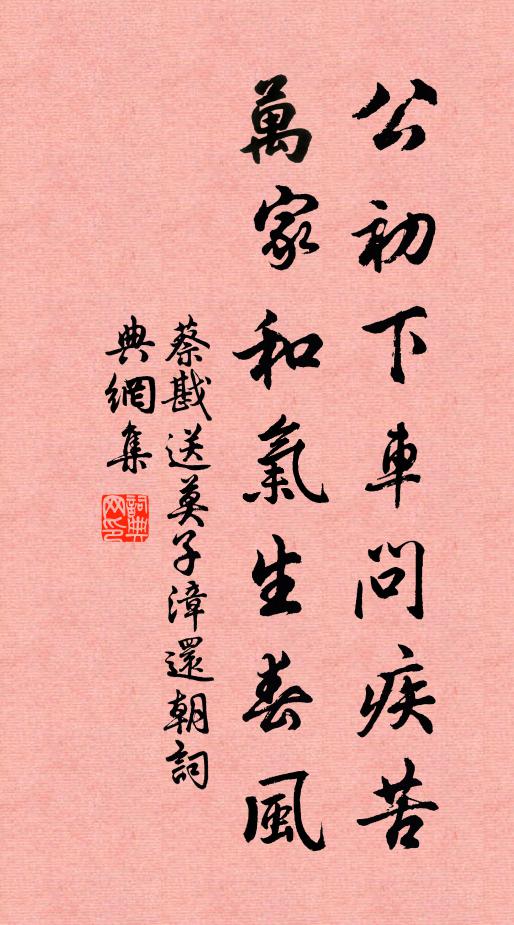 公初下車問疾苦
萬家和氣生春風
蔡戡送莫子漳還朝詞
典網集
詞典
网印